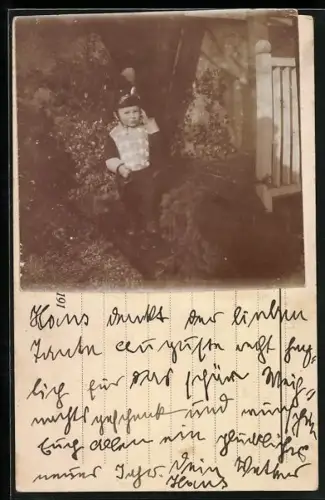 Hans denkt der lieben
Tante Auguste recht herz-
lich für das schöne Weih-
nachtsgeschenk und wünscht
Euch allen ein glückliches
neues Jahr. Dein
Hans
191